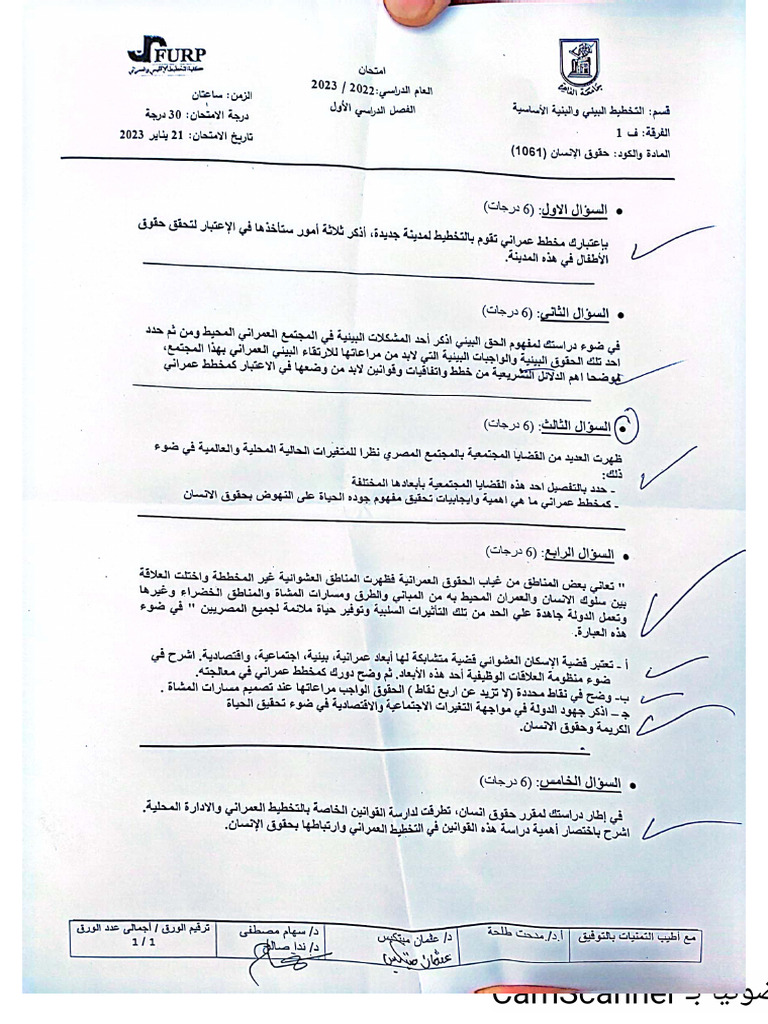 FURP
كلية التخطيط الإقليمي والعمراني
جامعة القاهرة
امتحان
العام الدراسي:2022 / 2023
الفصل الدراسي الأول
قسم: التخطيط البيئي والبنية الأساسية
الفرقة: ف 1
المادة والكود: حقوق الإنسان (1061)
الزمن: ساعتان
درجة الامتحان: 30 درجة
تاريخ الامتحان: 21 يناير 2023
• السؤال الاول: (6 درجات)
بإعتبارك مخطط عمراني تقوم بالتخطيط لمدينة جديدة، أذكر ثلاثة أمور ستأخذها في الإعتبار لتحقق حقوق
الأطفال في هذه المدينة.
• السؤال الثاني: (6 درجات)
في ضوء دراستك لمفهوم الحق البيئي اذكر أحد المشكلات البيئية في المجتمع العمراني المحيط ومن ثم حدد
احد تلك الحقوق البيئية والواجبات البيئية التي لابد من مراعاتها للارتقاء البيئي العمراني بهذا المجتمع,
موضحا اهم الدلائل التشريعية من خطط واتفاقيات وقوانين لابد من وضعها في الاعتبار كمخطط عمراني
• السؤال الثالث: (6 درجات)
ظهرت العديد من القضايا المجتمعية بالمجتمع المصري نظرا للمتغيرات الحالية المحلية والعالمية في ضوء
ذلك:
- حدد بالتفصيل احد هذه القضايا المجتمعية بأبعادها المختلفة
- كمخطط عمراني ما هي اهمية وايجابيات تحقيق مفهوم جوده الحياة على النهوض بحقوق الانسان
• السؤال الرابع: (6 درجات)
" تعاني بعض المناطق من غياب الحقوق العمرانية فظهرت المناطق العشوائية غير المخططة واختلت العلاقة
بين سلوك الانسان والعمران المحيط به من المباني والطرق ومسارات المشاة والمناطق الخضراء وغيرها
وتعمل الدولة جاهدة علي الحد من تلك التأثيرات السلبية وتوفير حياة ملائمة لجميع المصريين " في ضوء
هذه العبارة.
أ - تعتبر قضية الإسكان العشوائي قضية متشابكة لها أبعاد عمرانية، بيئية، اجتماعية، واقتصادية. اشرح في
ضوء منظومة العلاقات الوظيفية أحد هذه الأبعاد. ثم وضح دورك كمخطط عمراني في معالجته.
ب- وضح في نقاط محددة (لا تزيد عن اربع نقاط ) الحقوق الواجب مراعاتها عند تصميم مسارات المشاة .
ج – اذكر جهود الدولة في مواجهة التغيرات الاجتماعية والاقتصادية في ضوء تحقيق الحياة
الكريمة وحقوق الانسان.
• السؤال الخامس: (6 درجات)
في إطار دراستك لمقرر حقوق انسان، تطرقت لدارسة القوانين الخاصة بالتخطيط العمراني والادارة المحلية.
اشرح باختصار أهمية دراسة هذه القوانين في التخطيط العمراني وارتباطها بحقوق الإنسان.
مع أطيب التمنيات بالتوفيق
أ.د/ مدحت طلحة
د/ عثمان ميتكيس
د/ سهام مصطفى
د/ ندا صالح
ترقيم الورق / أجمالي عدد الورق
1 / 1
ضوئيا بـ CamScanner